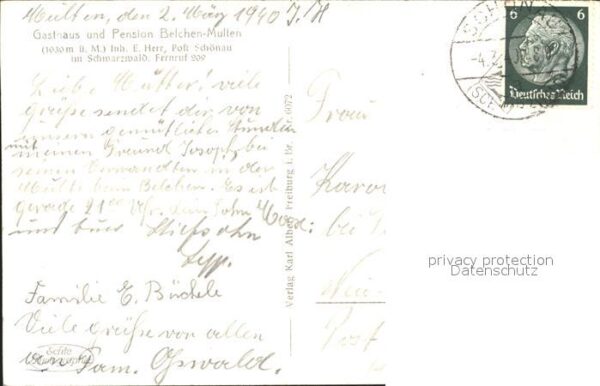 Multen, den 2. März 1940 J. H
Gasthaus und Pension Belchen-Multen
(1030 m ü. M.) Inh. E. Herr, Post Schönau
im Schwarzwald, Fernruf 209
Liebe Mutter! viele
grüße sendet dir von
unsern gemütlichen Stunden
mit meinen Freund Joseph bei
seinen Verwandten in der
Multe beim Belchen. Es ist
gerade 21 00 Uhr. dein Sohn
und
Sepp.
Familie E. Büchele
Viele grüße von allen
von Fam. Oswald.
Verlag Karl Alber, Freiburg i. Br. Nr. 6072
Echte
Photographie
Frau
bei
Neu
Post
6 6
Deutsches Reich
SCHÖNAU
privacy protection
Datenschutz